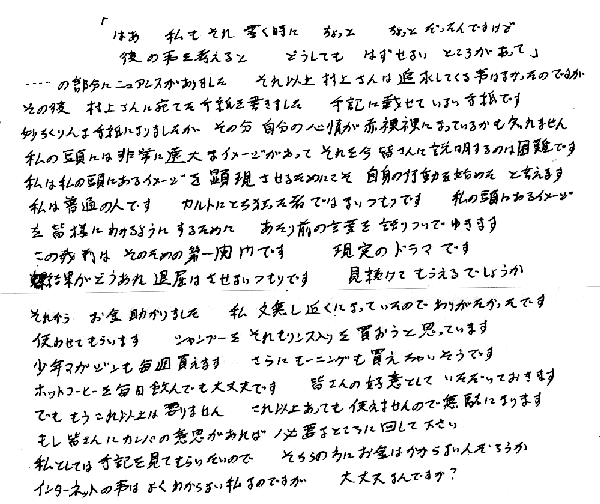 「はあ 私もそれ書く時に ちょっと ちょっとだったんですけど
彼の事を考えると どうしても はずせない ところがあって」
……の部分にニュアンスがありました それ以上村上さんは追求してくる事はなかったのですが
その後 村上さんに宛てた手紙を書きました 手記に載せていない手紙です
めちゃくちゃな手紙になりましたが その分 自分の心情が赤裸裸になっているかも知れません
私の頭には非常に遠大なイメージがあって それを今皆さんに説明するのは困難です
私は私の頭にあるイメージを顕現させるためにこそ 自身の行動を始めた と言えます
私は普通の人です カルトにとち狂った者ではないつもりです 私の頭にあるイメージ
を皆様にわかるように するために あたり前の言葉を語りついでゆきます
この裁判は そのための第一関門です 現定のドラマです
結果がどうあれ 退屈はさせないつもりです 見続けて もらえるでしょうか
それから お金 助かりました 私 文無し近くになっていたので ありがたかったです
使わせてもらいます シャンプーを それもリンス入りを 買おうと思っています
少年マガジンも毎週買えます さらにモーニングも買えちゃいそうです
ホットコーヒーを毎日飲んでも大丈夫です 皆さんの好意として いただいておきます
でも もうこれ以上は要りません これ以上あっても 使えませんので無駄になります
もし皆さんにカンパの意思があれば 必要なところに回して下さい
私としては手記を見てもらいたいので そちらの方にお金はかからないんだろうか
インターネットの事は よくわからない私なのですが 大丈夫なんですか?